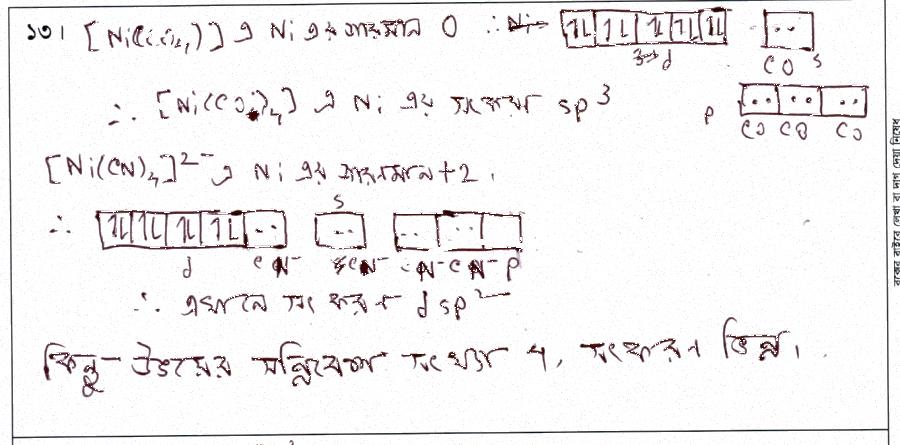 ১৩। [Ni(CO)4] এ Ni এর জারণমান 0 ∴ Ni 1L 1L 1L 1L 1L ..
3d CO s
∴ [Ni(CO)4] এ Ni এর সংকরণ sp3 p .. .. ..
CO CO CO
[Ni(CN)4]2- এ Ni এর জারণমান +2.
s
∴ 1L 1L 1L 1L .. .. .. ..
d CN- CN- CN- CN- p
∴ এখানে সংকরণ dsp2
কিন্তু উভয়ের সন্নিবেশ সংখ্যা 4, সংকরণ ভিন্ন।
বক্সের বাইরে লেখা বা দাগ দেয়া নিষেধ